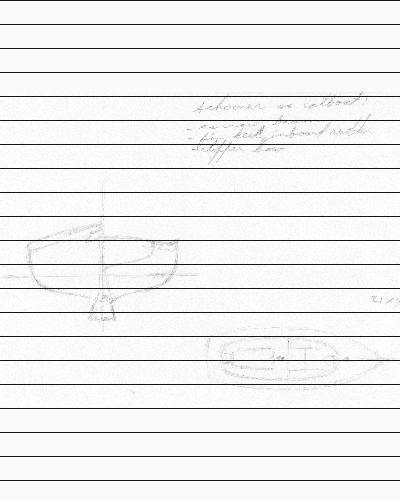 schooner vs catboat:
- narrow beam
- fin keel, inboard rudder
- stiffer bow